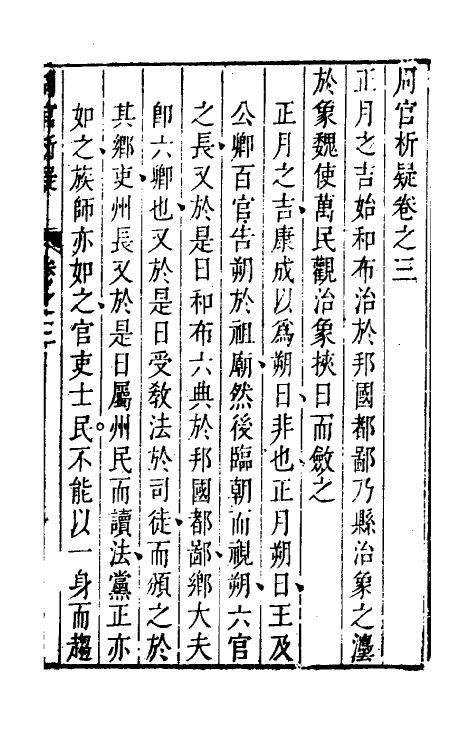 周官析疑卷之三
正月之吉始和布治於邦國都鄙乃縣治象之灋
於象魏使萬民觀治象挾日而斂之
正月之吉康成以爲朔日非也正月朔日王及
公卿百官告朔於祖廟然後臨朝而視朔六官
之長又於是日和布六典於邦國都鄙鄉大夫
卽六卿也又於是日受敎法於司徒而頒之於
其鄉吏州長又於是日屬州民而讀法黨正亦
如之族師亦如之官吏士民不能以一身而趨
周官析疑 卷之三